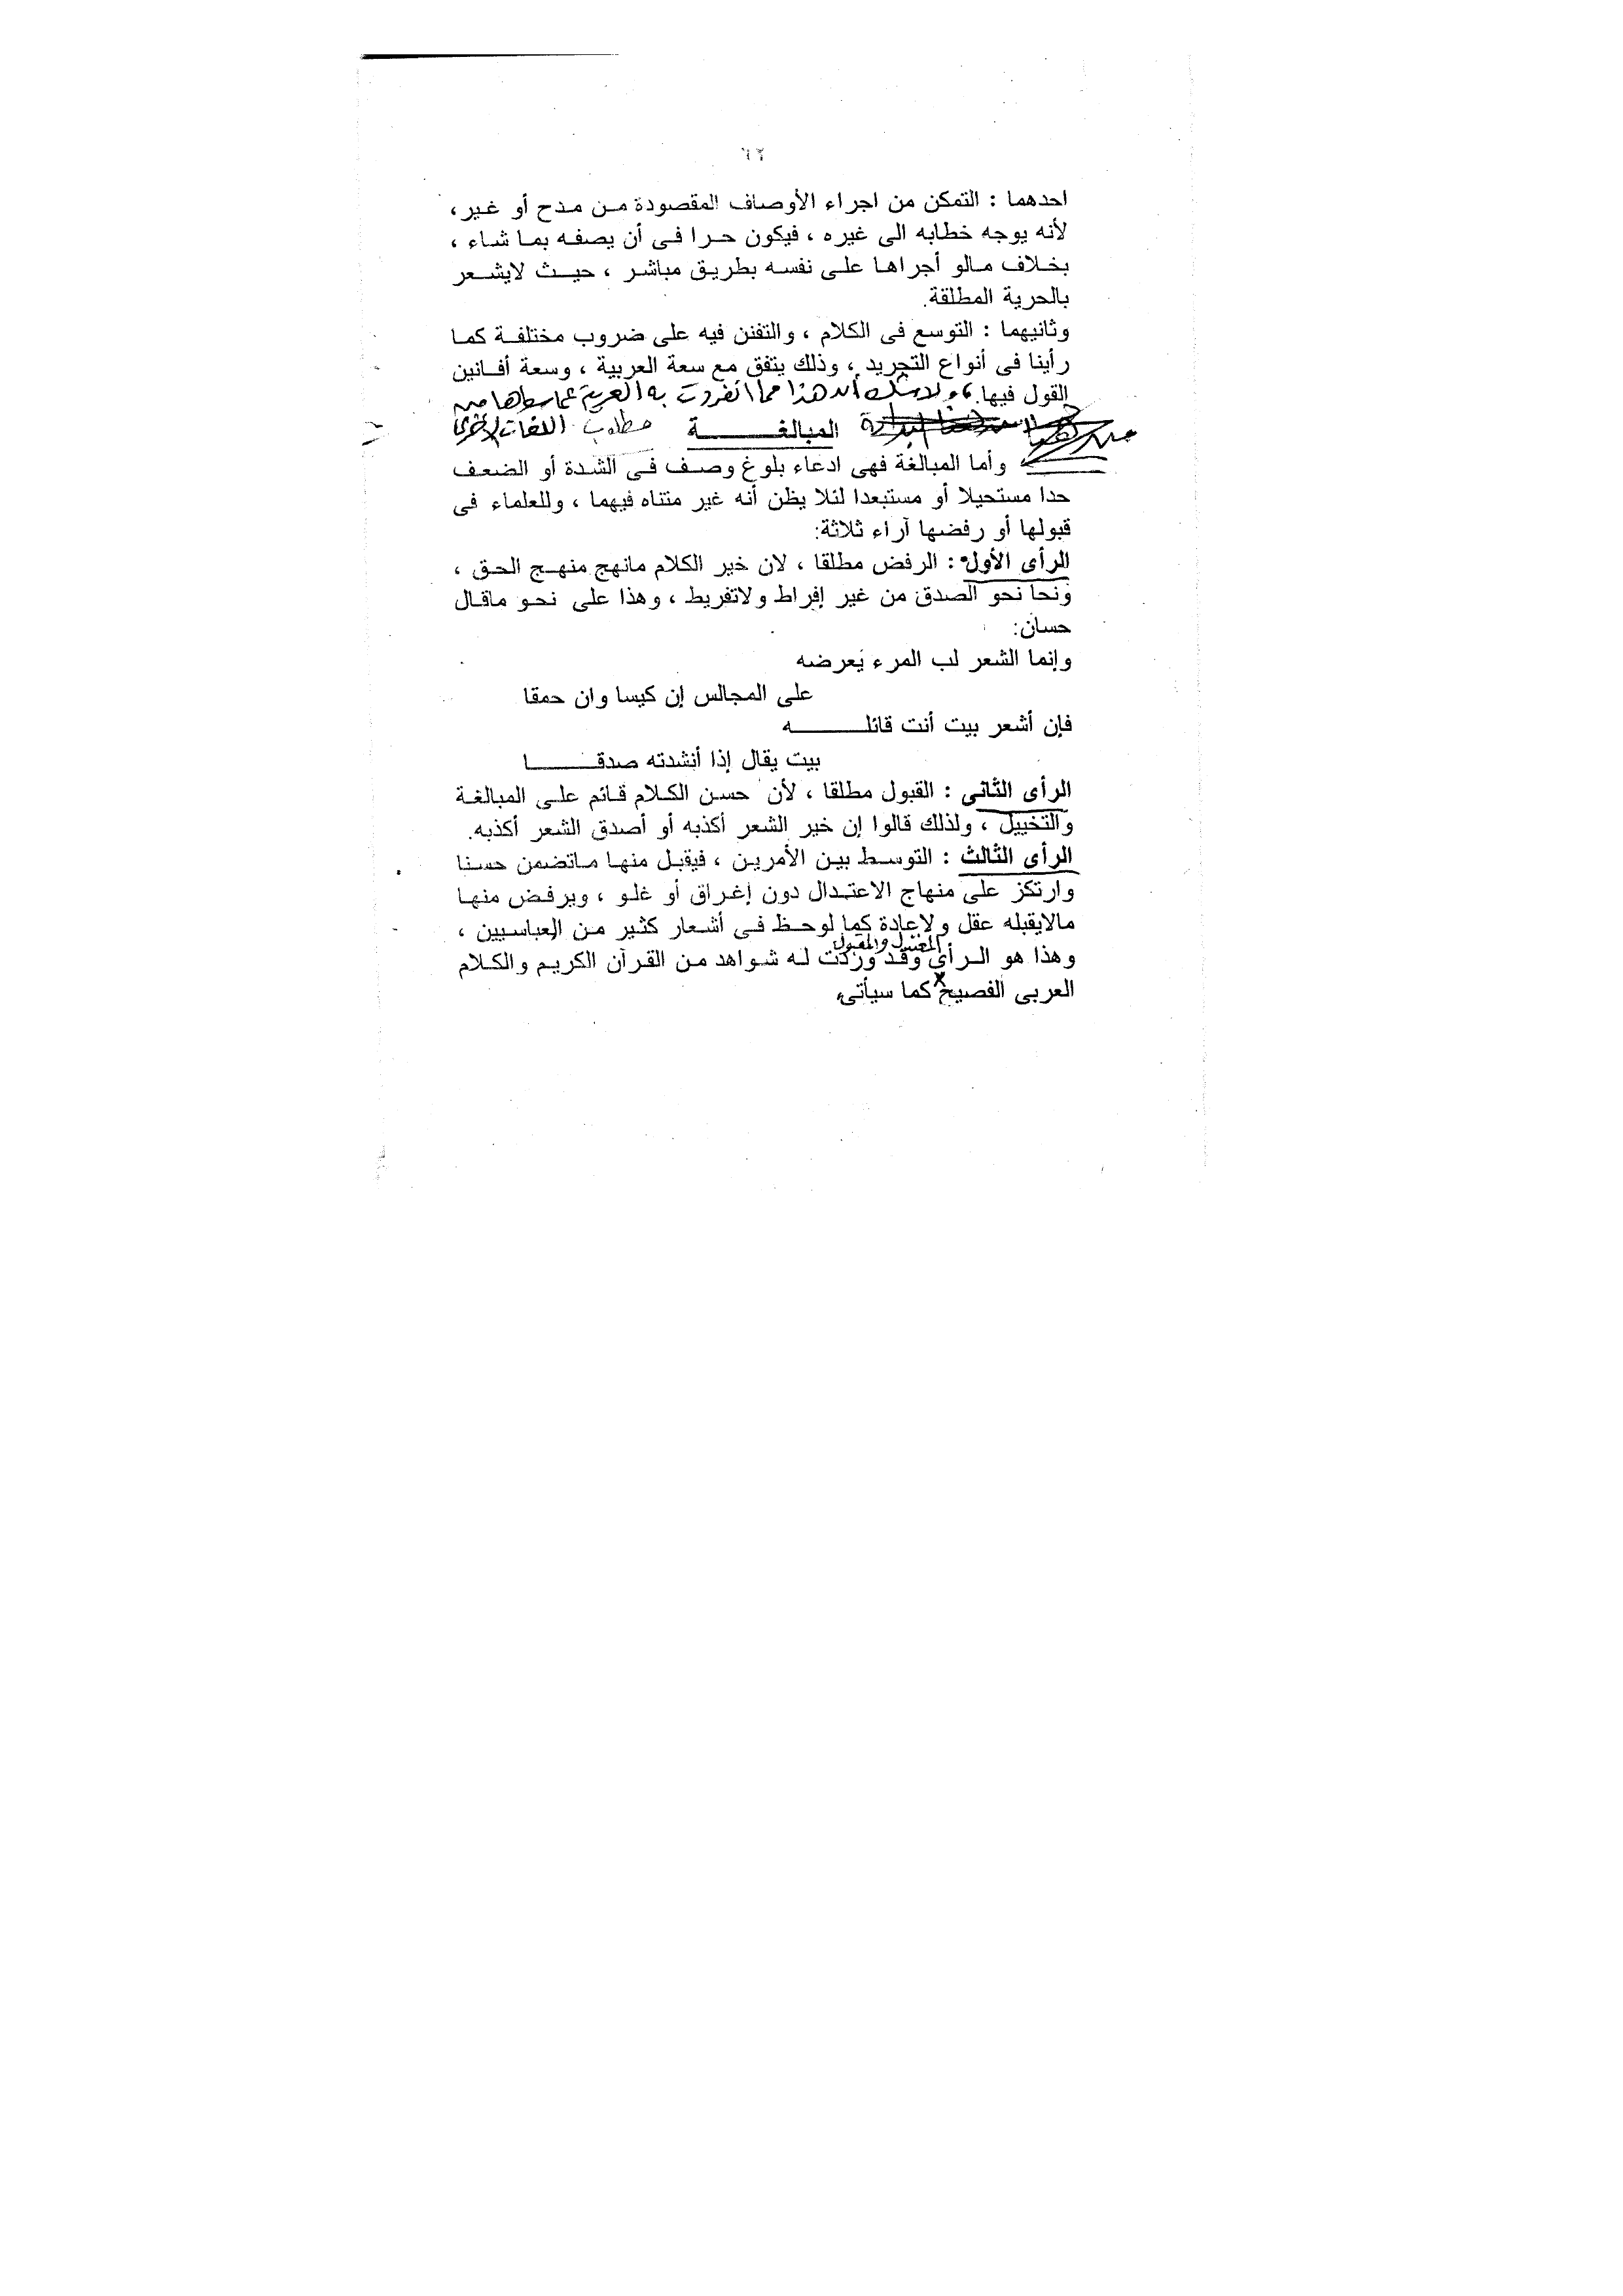 ٦٢
احدهما : التمكن من اجراء الأوصاف المقصودة من مدح أو غير،
لأنه يوجه خطابه الى غيره ، فيكون حرا فى أن يصفه بما شاء ،
بخلاف مالو أجراها على نفسه بطريق مباشر ، حيث لايشعر
بالحرية المطلقة.
وثانيهما : التوسع فى الكلام ، والتفنن فيه على ضروب مختلفة كما
رأينا فى أنواع التجريد ، وذلك يتفق مع سعة العربية ، وسعة أفانين
القول فيها. ولا شك أن هذا مما انفردت به العربية عما سواها من
المبالغـــــــة اللغات الأخرى
وأما المبالغة فهى ادعاء بلوغ وصف فى الشدة أو الضعف
حدا مستحيلا أو مستبعدا لئلا يظن أنه غير متناه فيهما ، وللعلماء فى
قبولها أو رفضها آراء ثلاثة:
الرأى الأول : الرفض مطلقا ، لان خير الكلام مانهج منهج الحق ،
ونحا نحو الصدق من غير إفراط ولاتفريط ، وهذا على نحو ماقال
حسان:
وإنما الشعر لب المرء يعرضه
على المجالس إن كيسا وان حمقا
فإن أشعر بيت أنت قائلـــــــه
بيت يقال إذا أنشدته صدقـــــــا
الرأى الثانى : القبول مطلقا ، لأن حسن الكلام قائم على المبالغة
والتخييل ، ولذلك قالوا إن خير الشعر أكذبه أو أصدق الشعر أكذبه.
الرأى الثالث : التوسط بين الأمرين ، فيقبل منها ماتضمن حسنا
وارتكز على منهاج الاعتدال دون إغراق أو غلو ، ويرفض منها
مالايقبله عقل ولاعادة كما لوحظ فى أشعار كثير من العباسيين ،
والمقبول
وهذا هو الرأى وقد وردت له شواهد من القرآن الكريم والكلام
العربى الفصيح كما سيأتى